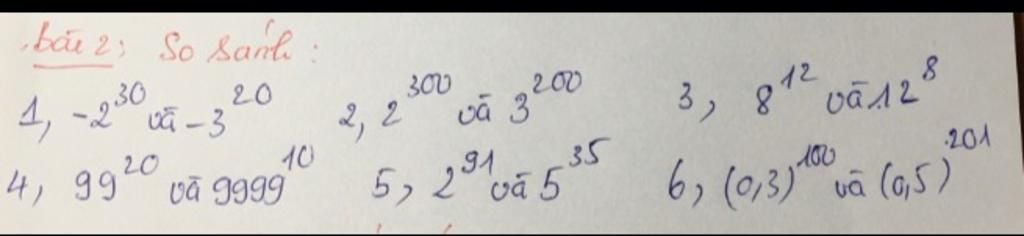 Bài 2: So sánh:
1, -2³⁰ và -3²⁰ 2, 2³⁰⁰ và 3²⁰⁰ 3, 8¹² và 12⁸
4, 99²⁰ và 9999¹⁰ 5, 2⁹¹ và 5³⁵ 6, (0,3)¹⁰⁰ và (0,5)²⁰¹